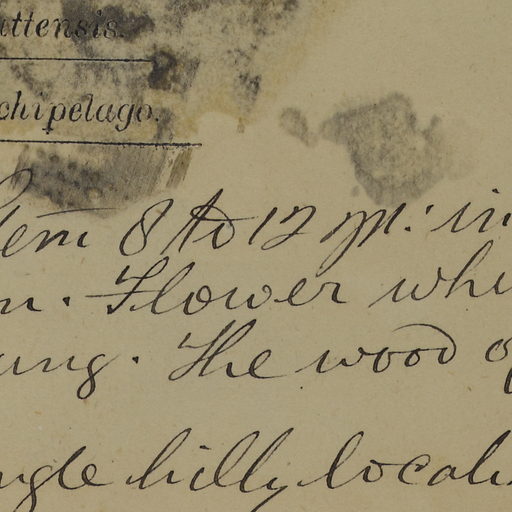 uttensis.
chipelago.
tem 8 to 12 m: in
n. Flower whi
ung. The wood o
ngle hilly locali